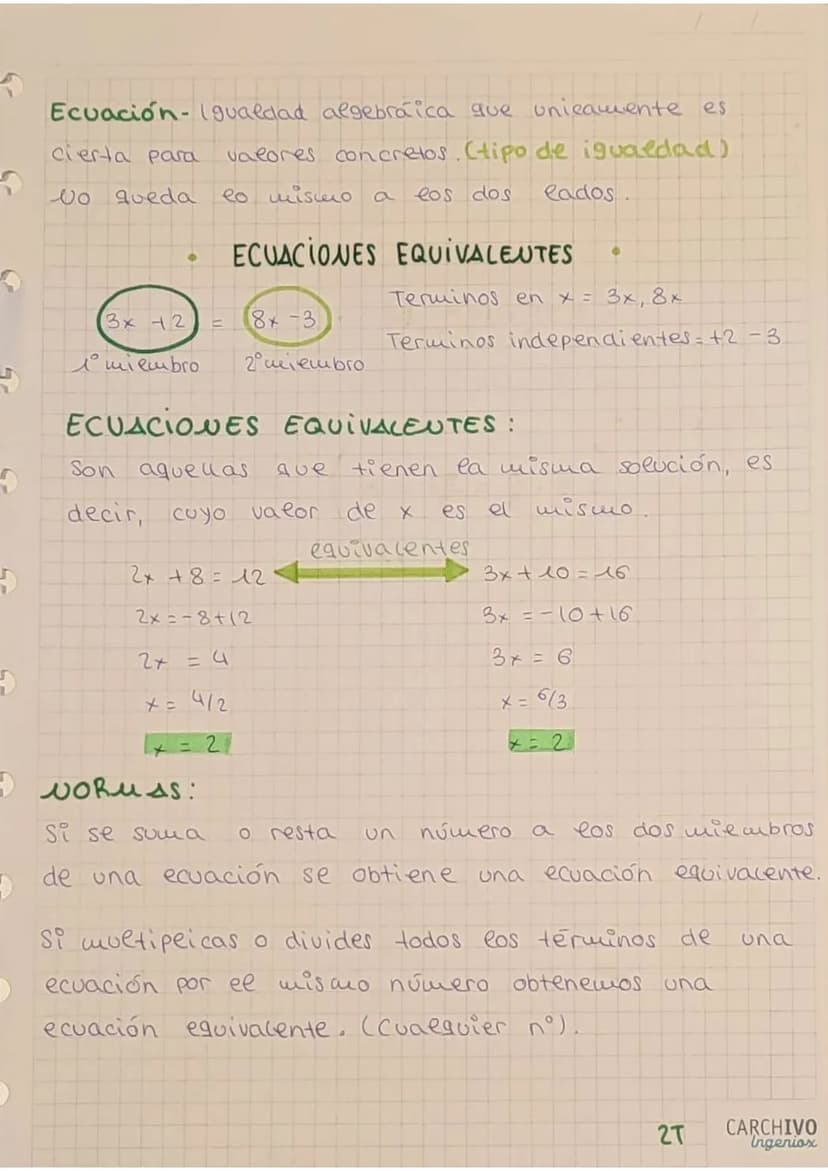 Ecuación- Igualdad algebráica que unicamente es
cierta para valores concretos. (tipo de igualdad)
No queda lo mismo a los dos lados.
• ECUACIONES EQUIVALENTES •
3x +2 = 8x -3
Terminos en x = 3x, 8x
1º miembro 2º miembro
Terminos independientes = +2 -3
ECUACIONES EQUIVALENTES:
Son aquellas que tienen la misma solución, es
decir, cuyo valor de x es el mismo.
equivalentes
2x +8 = 12 3x + 10 = 16
2x = -8+12 3x = -10+16
2x = 4 3x = 6
x = 4/2 x = 6/3
x = 2 x = 2
NORMAS:
Si se suma o resta un número a los dos miembros
de una ecuación se obtiene una ecuación equivalente.
Si multiplicas o divides todos los términos de una
ecuación por el mismo número obtenemos una
ecuación equivalente. (Cualquier nº).
2T
CARCHIVO
Ingeniox